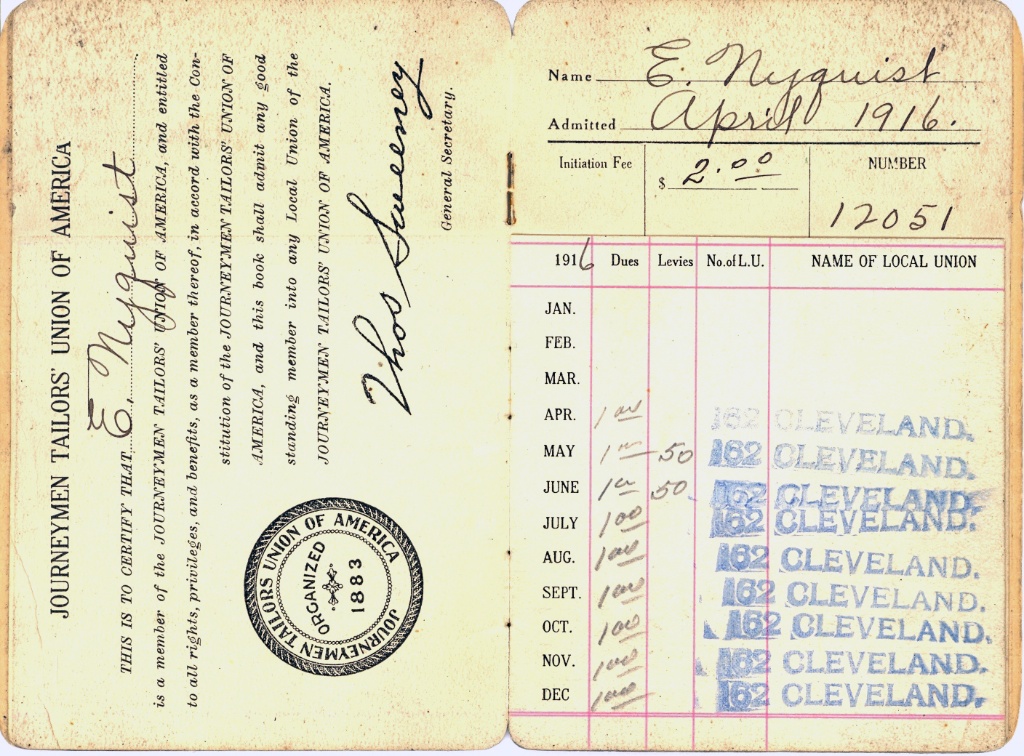 JOURNEYMEN TAILORS' UNION OF AMERICA
THIS IS TO CERTIFY THAT E. Nyquist
is a member of the JOURNEYMEN TAILORS' UNION OF AMERICA, and entitled
to all rights, privileges, and benefits, as a member thereof, in accord with the Con-
stitution of the JOURNEYMEN TAILORS' UNION OF
AMERICA, and this book shall admit any good
standing member into any Local Union of the
JOURNEYMEN TAILORS' UNION OF AMERICA.
Thos Sweeney
General Secretary.
JOURNEYMEN TAILORS UNION OF AMERICA
ORGANIZED
1883
Name E. Nyquist
Admitted April 1916.
Initiation Fee $ 2.00 NUMBER 12051
1916 Dues Levies No. of L.U. NAME OF LOCAL UNION
JAN.
FEB.
MAR.
APR. 1 00 162 CLEVELAND.
MAY 1 00 50 162 CLEVELAND.
JUNE 1 00 50. 162 CLEVELAND.
JULY 1 00 162 CLEVELAND.
AUG. 1 00 162 CLEVELAND.
SEPT. 1 00 162 CLEVELAND.
OCT. 1 00 162 CLEVELAND.
NOV. 1 00 162 CLEVELAND.
DEC 1 00 162 CLEVELAND.